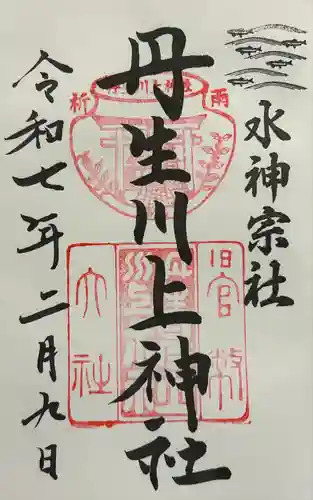 水神宗社
丹生川上神社
令和七年二月九日
祈
雨
旧官幣
大社